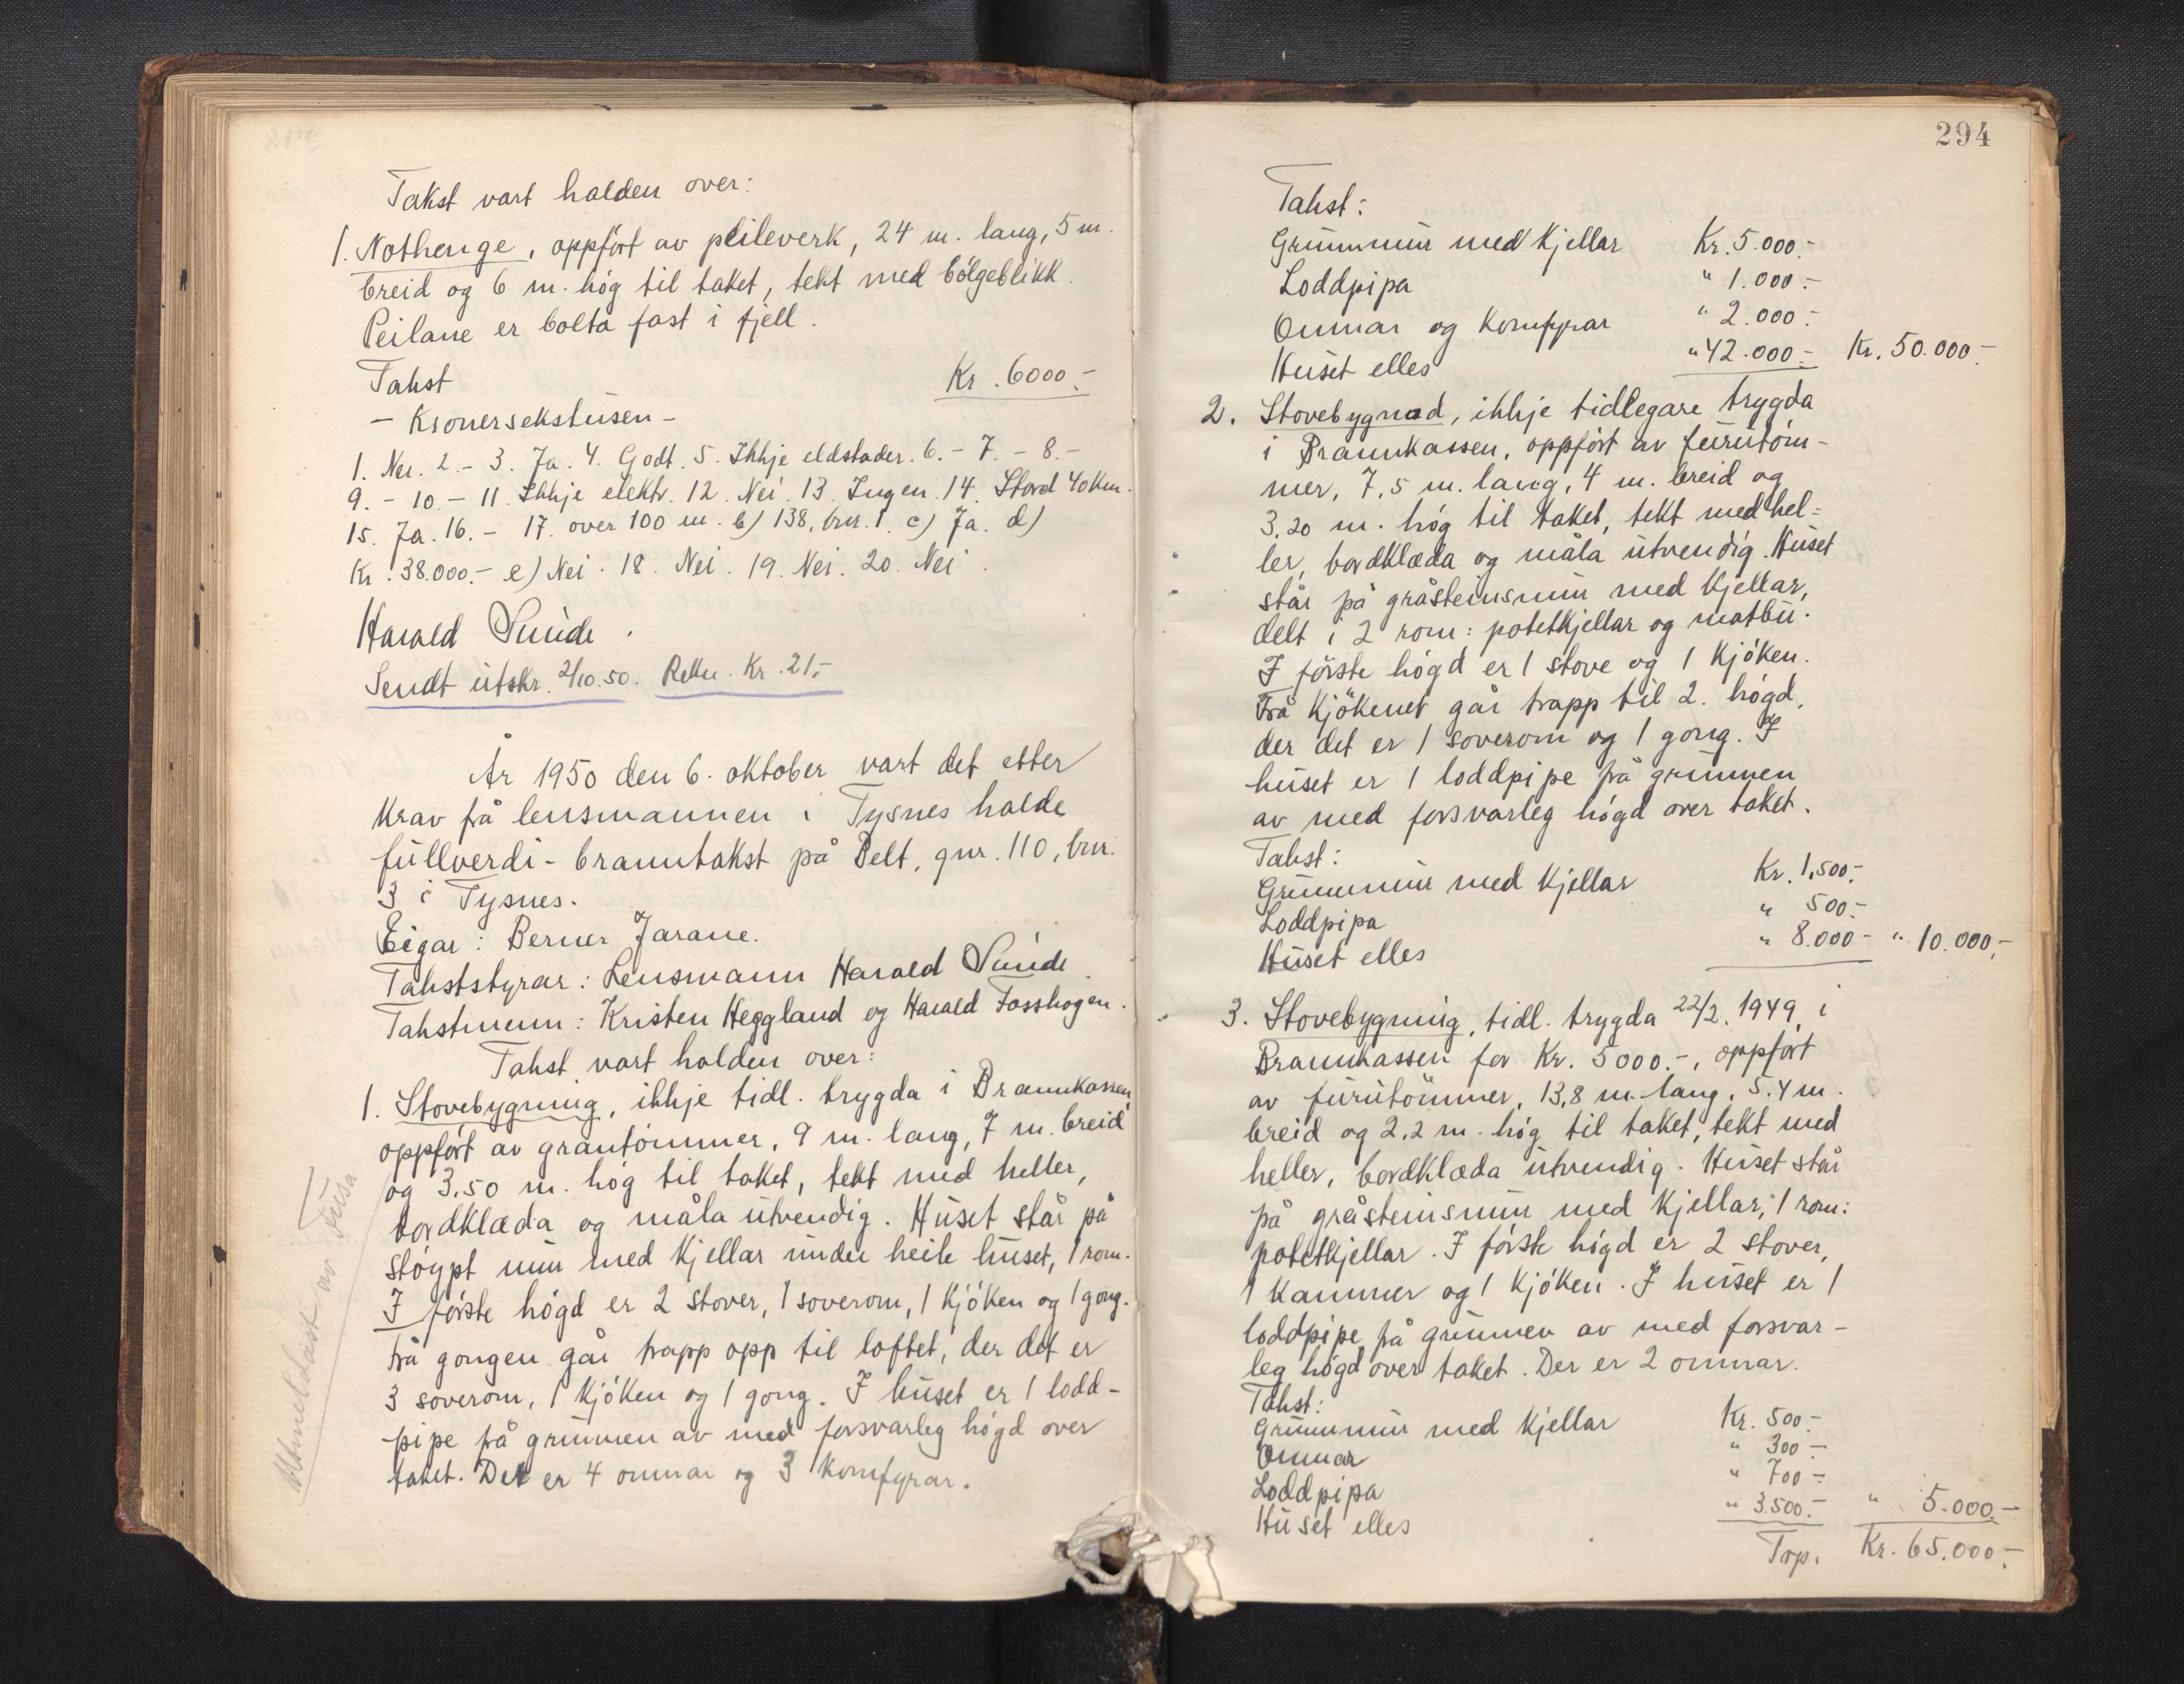 Takst vart halden over:
1. Nothenge, oppført av peileverk, 24 m. lang, 5 m.
breid og 6 m. høg til taket, tekt med bølgeblikk.
Peilane er bolta fast i fjell.
Takst Kr. 6000.-
- Kronersekstusen -
1. Nei. 2.- 3. Ja. 4. Godt. 5. Ikkje eldstader. 6.- 7.- 8.-
9.- 10.- 11. Ikkje elektr. 12. Nei. 13. Ingen. 14. Stord 40 km.
15. Ja. 16.- 17. over 100 m. b) 138, bnr. 1. c) Ja. d)
Kr. 38.000.- e) Nei. 18. Nei. 19. Nei. 20. Nei.
Harald Sunde.
Sendt utskr. 2/10.50. Rekn. Kr. 21,-
År 1950 den 6. oktober vart det etter
krav frå lensmannen i Tysnes halde
fullverdi-branntakst på Belt, gnr. 110, bnr.
3 i Tysnes.
Eigar: Berner Jarane.
Takststyrar: Lensmann Harald Sunde.
Takstmenn: Kristen Heggland og Harald Fosshagen.
Takst vart halden over:
1. Stovebygning, ikkje tidl. trygda i Brannkassen,
oppført av grantømmer, 9 m. lang, 7 m. breid
og 3.50 m. høg til taket, tekt med heller,
bordklæda og måla utvendig. Huset står på
støypt mur med kjellar under heile huset, 1 rom.
I første høgd er 2 stover, 1 soverom, 1 kjøken og 1 gong.
Frå gongen går trapp opp til loftet, der det er
3 soverom, 1 kjøken og 1 gong. I huset er 1 lodd-
pipe frå grunnen av med forsvarleg høgd over
taket. Det er 4 omnar og 3 komfyrar.
av Fusa
294
Takst:
Grunnmur med kjellar Kr. 5.000.-
Loddpipa " 1.000.-
Omnar og komfyrar " 2.000.-
Huset elles " 42.000.- Kr. 50.000.-
2. Stovebygnad, ikkje tidlegare trygda
i Brannkassen, oppført av furutøm-
mer, 7,5 m. lang, 4 m. breid og
3,20 m. høg til taket, tekt med hel-
ler, bordklæda og måla utvendig. Huset
står på gråsteinsmur med kjellar,
delt i 2 rom: potetkjellar og matbu.
I første høgd er 1 stove og 1 kjøken.
Frå kjøkenet går trapp til 2. høgd,
der det er 1 soverom og 1 gong. I
huset er 1 loddpipe frå grunnen
av med forsvarleg høgd over taket.
Takst:
Grunnmur med kjellar Kr. 1,500.-
Loddpipa " 500.-
Huset elles " 8.000.- " 10.000,-
3. Stovebygning, tidl. trygda 22/2. 1949 i
Brannkassen for Kr. 5000.-, oppført
av furutømmer, 13,8 m. lang, 5.4 m.
breid og 2.2 m. høg til taket, tekt med
heller, bordklæda utvendig. Huset står
på gråsteinsmur med kjellar, 1 rom:
potetkjellar. I første høgd er 2 stover,
1 kammer og 1 kjøken. I huset er 1
loddpipe frå grunnen av med forsvar-
leg høgd over taket. Der er 2 omnar.
Takst:
Grunnmur med kjellar Kr. 500.-
Omnar " 300.-
Loddpipa " 700.-
Huset elles " 3.500.- " 5.000.-
Trp. Kr. 65.000.-